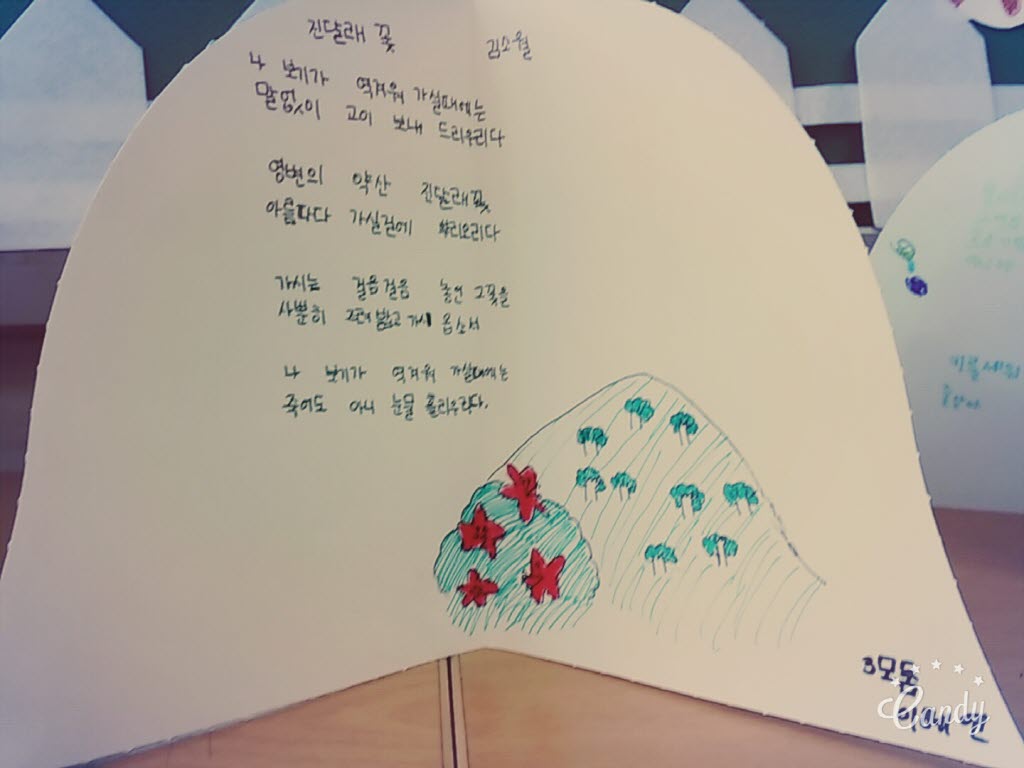 진달래 꽃 김소월
나 보기가 역겨워 가실때에는
말없이 고이 보내 드리우리다
영변의 약산 진달래꽃
아름따다 가실길에 뿌리오리다
가시는 걸음걸음 놓인 그꽃을
사뿐히 밟고 가시 옵소서
나 보기가 역겨워 가실때에는
죽어도 아니 눈물 흘리우리다.
3모둠
Candy